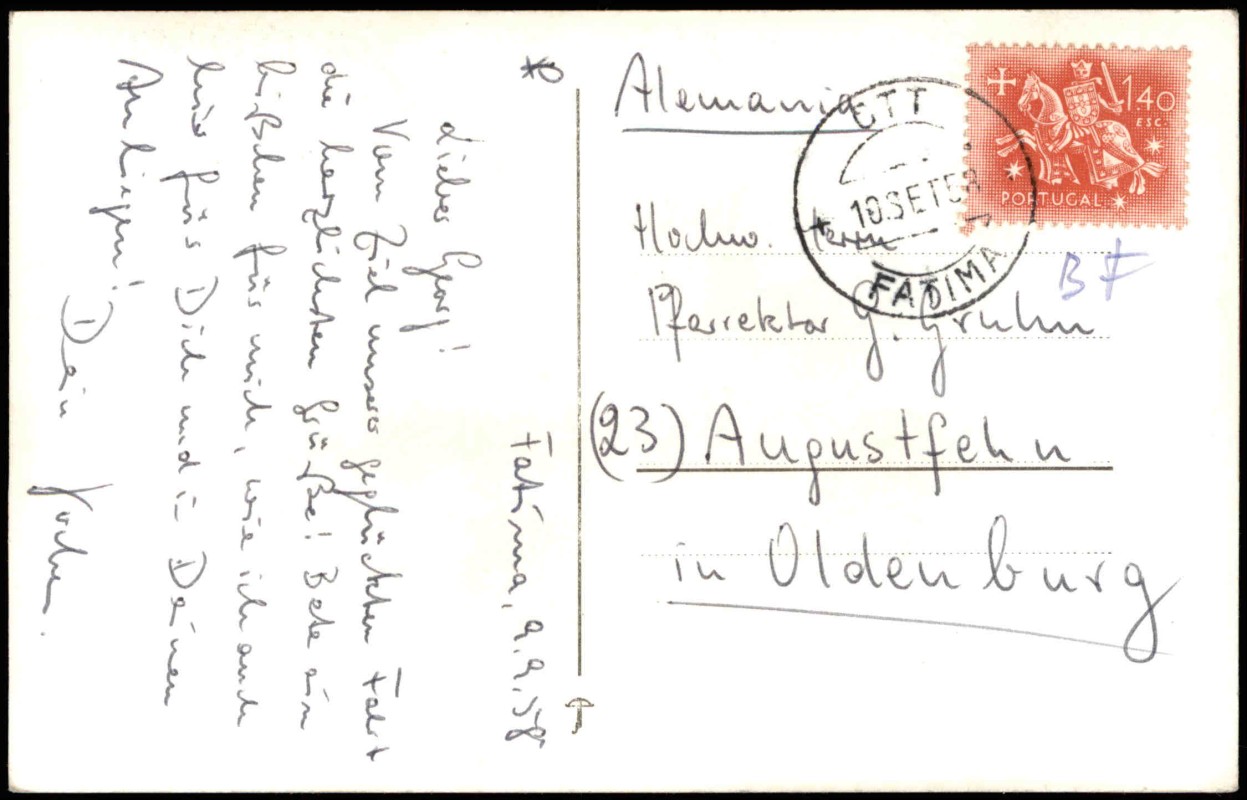 Fatima, 9.9.58
Lieber Georg!
Vom Ziel unserer geglückten Fahrt
die herzlichsten Grüße! Bete ein
bißchen für mich, wie ich auch
hier für Dich und in Deinen
Anliegen! Dein
Jochen.
Alemania
Hochw. Herrn
Pfarrektor G. Gruhn
(23) Augustfehn
in Oldenburg
BF
CTT
10 SETE 8
FATIMA
1$40
ESC.
PORTUGAL